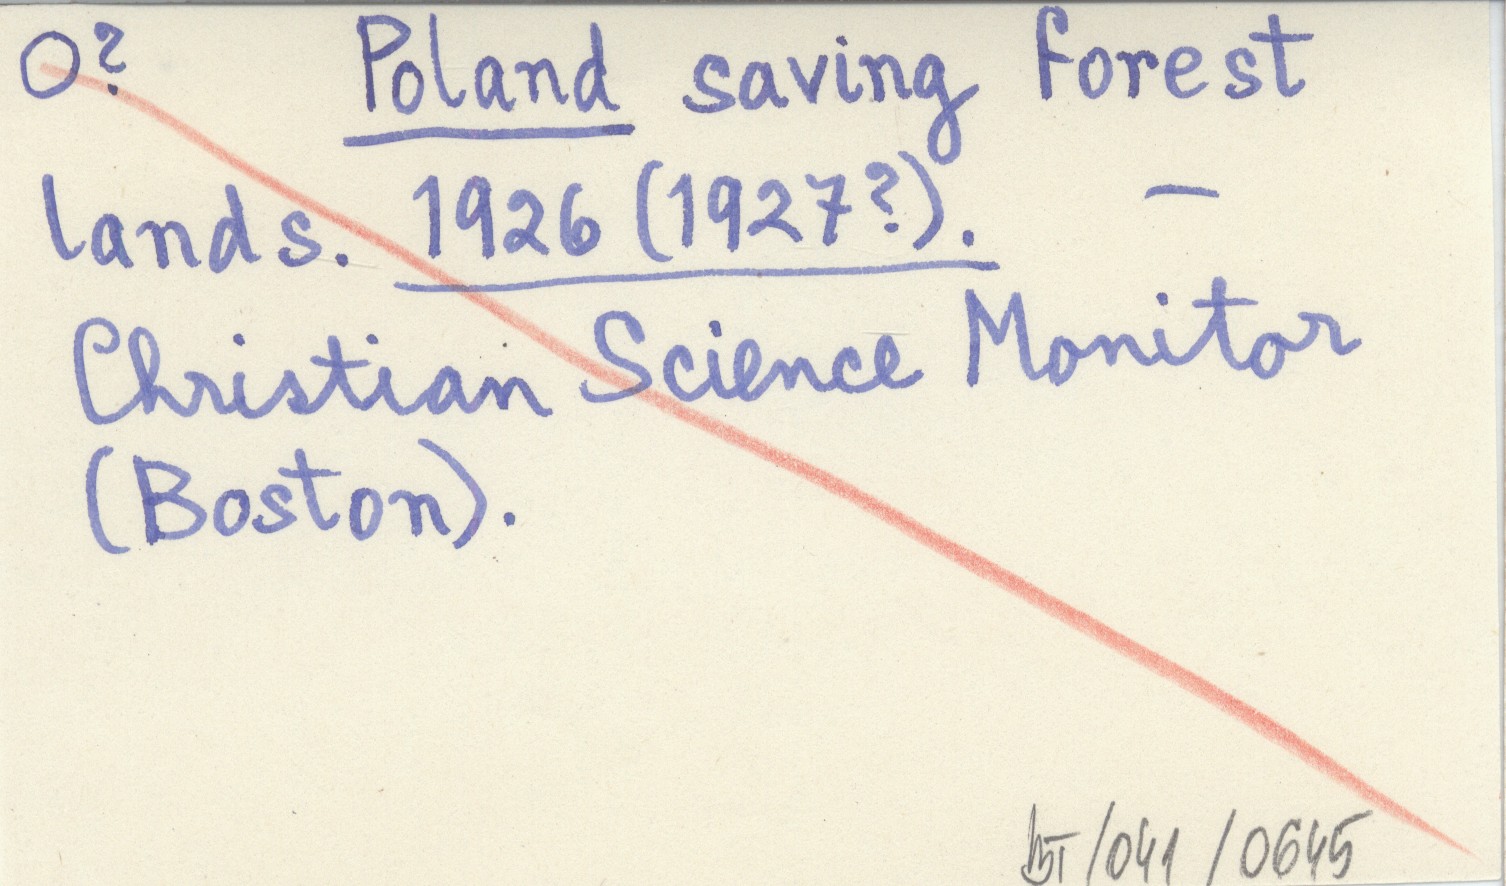 O? Poland saving forest
lands. 1926 (1927?). —
Christian Science Monitor
(Boston).
/041 /0645